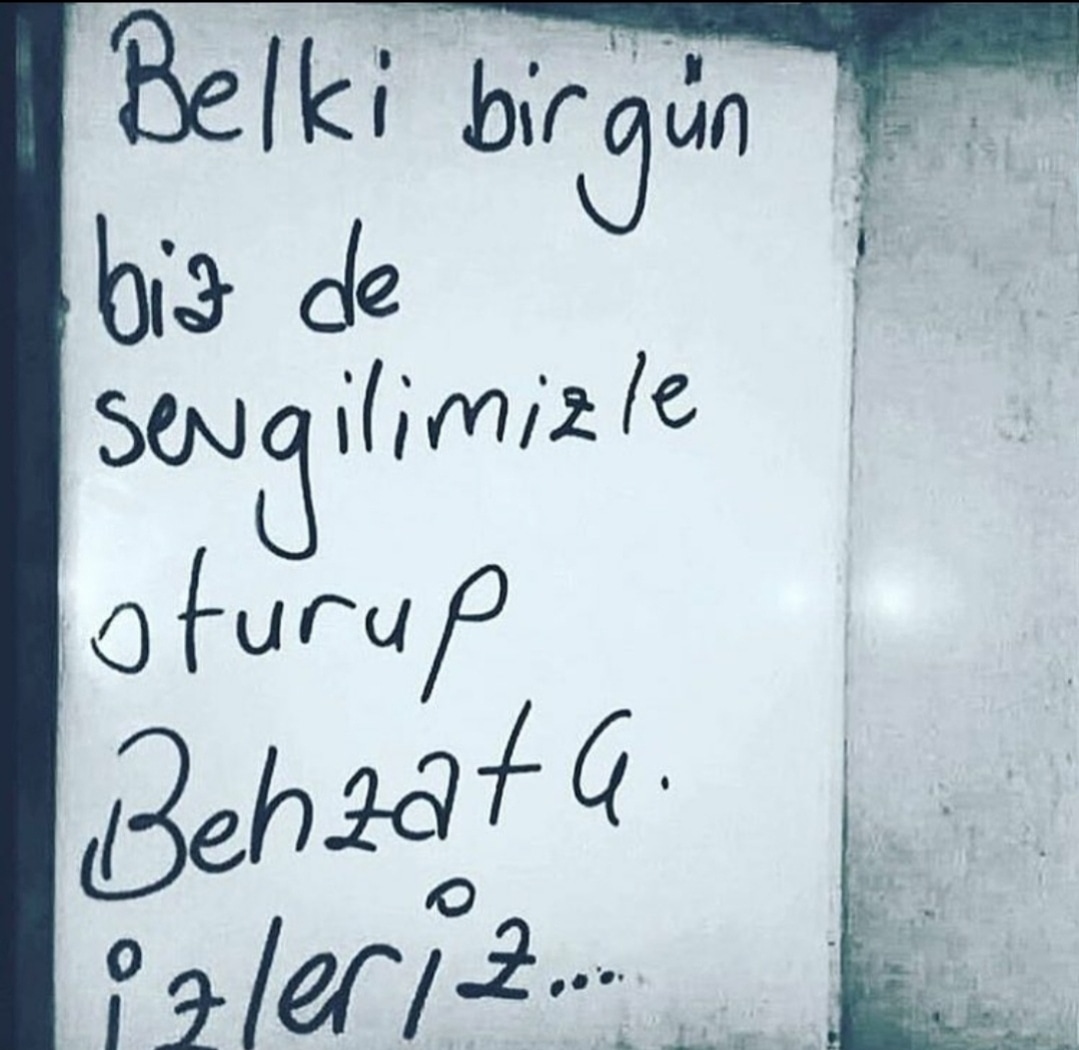 Belki bir gün
biz de
sevgilimizle
oturup
Behzat Ç.
izleriz...